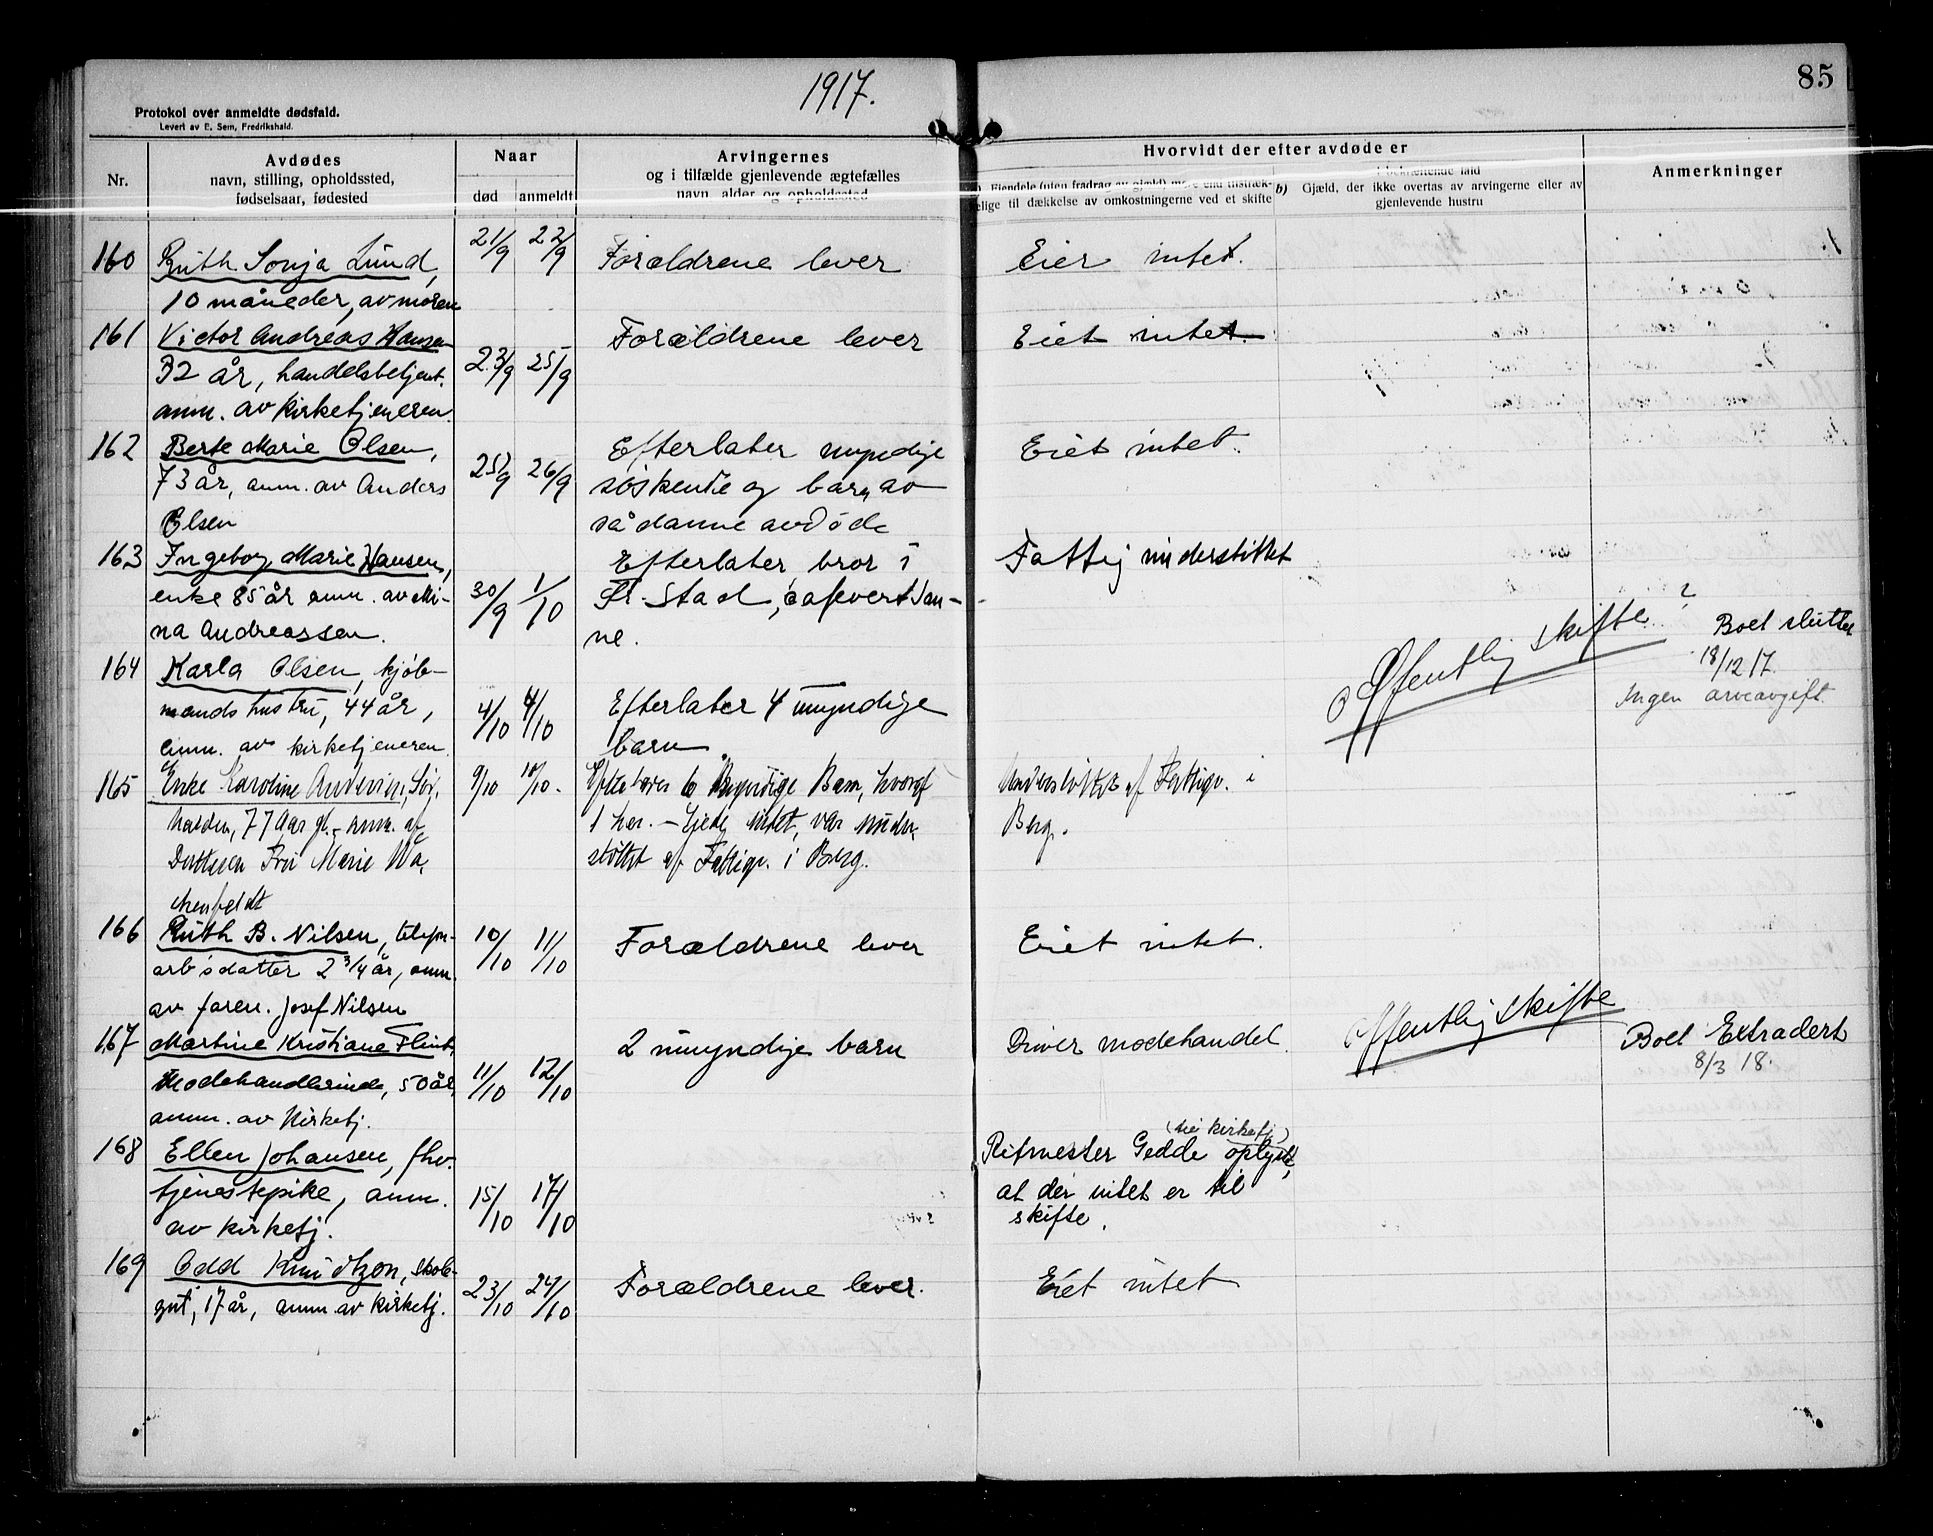 1917.
85
Protokol over anmeldte dødsfald.
Levert av E. Sem, Fredrikshald.
Nr.
Avdødes
navn, stilling, opholdssted,
fødselsaar, fødested
Naar
død anmeldt
Arvingernes
og i tilfælde gjenlevende ægtefælles
navn, alder og opholdssted
Hvorvidt der efter avdøde er
a) Eiendele (uten fradrag av gjæld) mere end tilstræk-
kelige til dækkelse av omkostningerne ved et skifte
i bekræftende fald
b) Gjæld, der ikke overtas av arvingerne eller av
gjenlevende hustru
Anmerkninger
160 Ruth Sonja Lund, 21/9 22/9 Forældrene lever Eier intet.
10 måneder, av moren
161 Victor Andreas Hansen 23/9 25/9 Forældrene lever Eiet intet.
32 år, handelsbetjent.
anm. av kirketjeneren.
162 Berte Marie Olsen, 25/9 26/9 Efterlater myndige Eiet intet.
73 år, anm. av Anders søskende og barn av
Olsen sådanne avdøde
163 Ingeborg Marie Hansen, 30/9 1/10 Efterlater bror i Fattig understittet
enke 85 år anm. av Mi- Fr.stad,
na Andreassen. ne.
164 Karla Olsen, kjøb- 4/10 4/10 Efterlater 4 umyndige Offentlig skifte ? Boet sluttet
mands hustru, 44 år, barn. 18/12 17.
anm. av kirketjeneren. Ingen arveavgift.
165 Enke Karoline 9/10 10/10. Efterlater 6 myndige Barn, hvoraf Understøttet af Fattigv. i
77 Aar gl. – Anm. af 1 her. – Ejede intet, var under- Berg.
Datteren Fru Marie Wa- støttet af Fattigv. i Berg.
chenfeldt
166 Ruth B. Nilsen, telefon- 10/10 11/10 Forældrene lever Eiet intet.
arb's datter 2 3/4 år, anm.
av faren. Josef Nilsen
167 Martine Kristiane Flint, 11/10 12/10 2 umyndige barn Driver modehandel. Offentlig skifte Boet Extradert
Modehandlerinde, 50 år, 8/3 18.
anm. av kirketj.
168 Ellen Johansen, fhv. 15/10 17/10 Ritmester Gedde (til kirketj) oplyst,
tjenestepike, anm. at der intet er til
av kirketj. skifte.
169 Odd Knudtzon, skole- 23/10 24/10 Forældrene lever. Eiet intet
gut, 17 år, anm av kirketj.